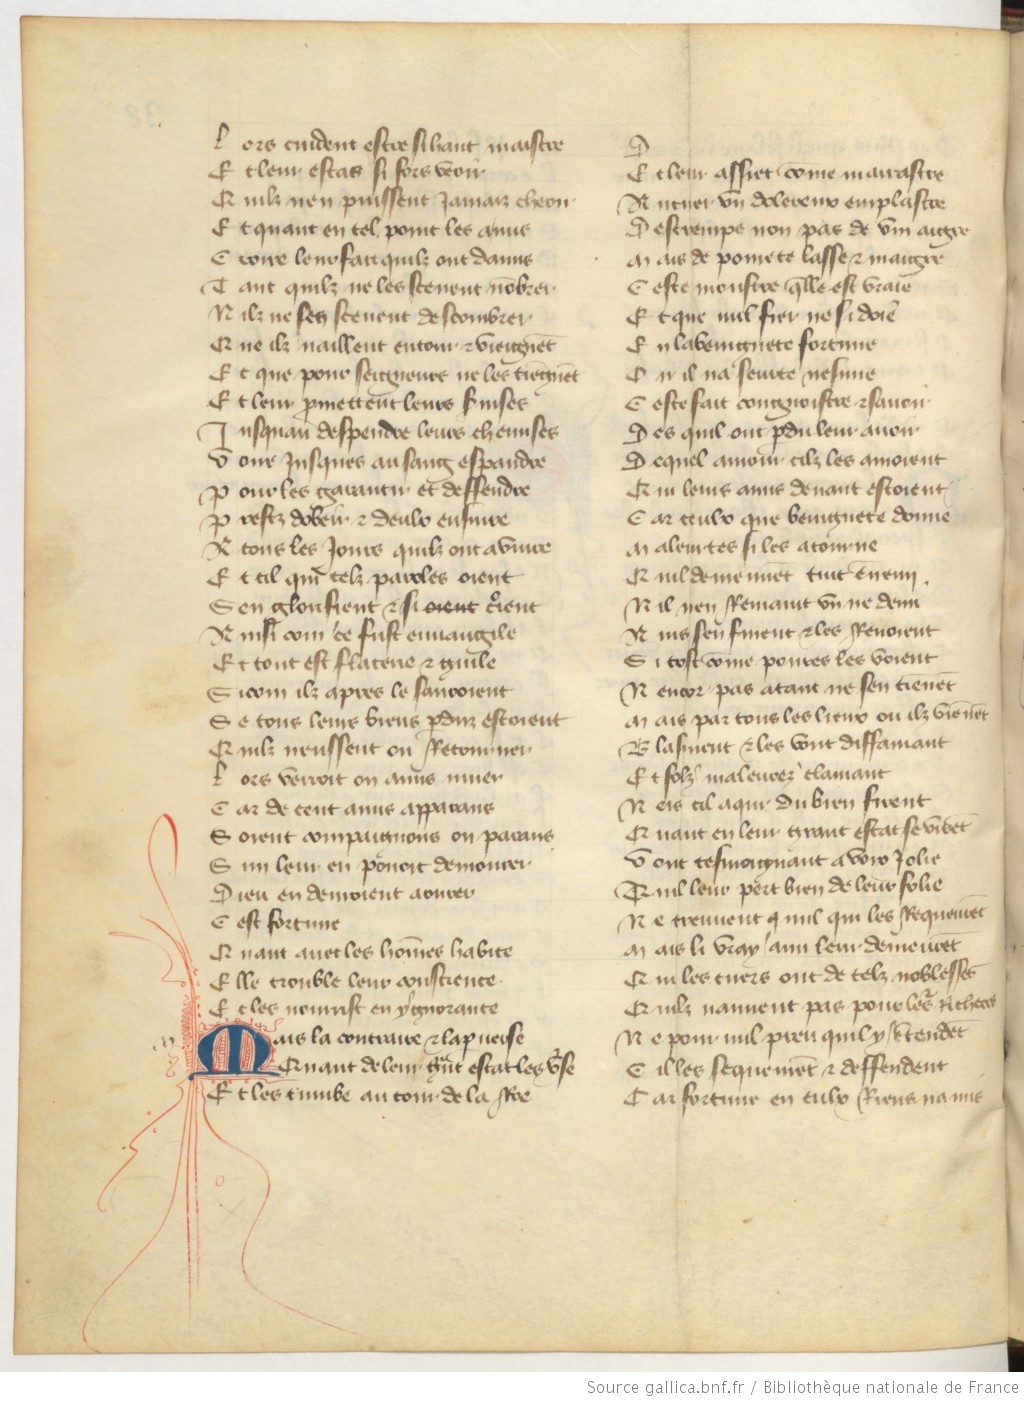 Lors cuident estre si hault maistre
Et leur estas si fors veoir
Quilz nen puissent Jamaiz cheoir
Et quant en tel point les amis
Croire leur fait quilz ont damis
Tant quilz ne les scevent nōbrer
Nilz ne sen scevent descombrer
Que ilz naillent entour ⁊ viengnēt
Et que pour seigneurs ne les tiēgnēt
Et leur pmettent leurs servises
Jusquau despendre leurs chemises
Voire Jusques au sang espandre
Pour les garantir et deffendre
Prestz dobeir ⁊ deulx ensuivre
A tous les Jours quilz ont a vivre
Et cil qui telz paroles oient
Sen glorifient ⁊ si oient croient
Ainsi com ce fust euvangile
Et tout est flaterie ⁊ guile
Sicom ilz apres le sauroient
Se tous leurs biens pduz estoient
Quilz neussent ou Retourner
Lors verroit on amis muer
Car de cent amis apparans
Soient compaignons ou parans
Sun leur en pouoit demourer
Dieu en devroient aourer
Cest fortune
Quant avec les hom̄es habite
Elle trouble leur conscience
Et les nourrist en ygnorance
Mais la contraire ⁊ la pverse
Quant de leur grāt estat les vse
Et les tumbe au tour de la Roe
D
Et leur assiet cōme marrastre
Au cuer vn dolereux emplastre
Destrempe non pas de vin aigre
Mais de povrete lasse ⁊ maigre
Ceste monstre qlle est vraie
Et que nul fier ne si doie
En la beneurete fortune
Qu il na seurte nesune
Ceste fait congnoistre ⁊ savoir
Des quil ont pdu leur avoir
De quel amour cilz les amoient
Qui leurs amis devant estoient
Car ceulx que beneurete donne
Maleurtes si les atourne
Quil deviennēt tuit ēnemi
Nil nen Remaint vn ne demi
Ains sen fuient ⁊ les Renoient
Si tost cōme povres les voient
Nencor pas atant ne sen tienēt
Mais par tous les lieux ou ilz viēnēt
Blasment ⁊ les vont diffamant
Et folz maleurez clamant
Neis cil a qui du bien firent
Quant en leur grant estat se virēt
Vont tesmoignant a voix Jolie
Quil leur pert bien de leur folie
Ne treuvent q nul qui les sequeurēt
Mais li vray ami leur demeurēt
Qui les cuers ont de telz noblesses
Quilz naiment pas pour les Richeces
Ne pour nul preu quil y attendēt
Cil les sequeurēt ⁊ deffendent
Car fortune en eulx Riens na mis
Source gallica.bnf.fr / Bibliothèque nationale de France